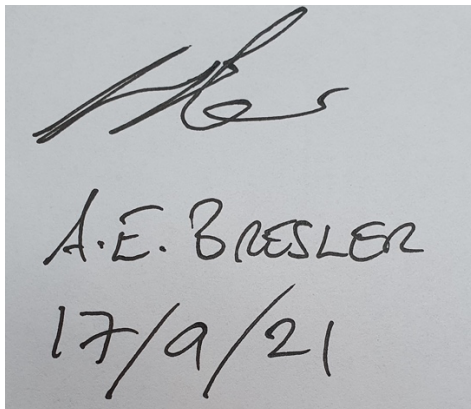 A.E. BRESLER
17/9/21